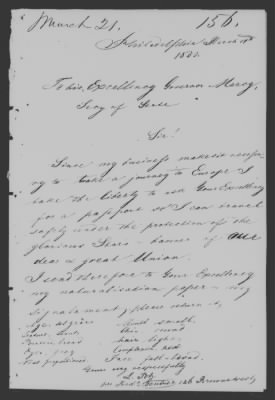 March 21.
156.
Philadelphia March
1853.
To his Excellency Governor Marcy,
Secy of State
Sir!
Since my business makes it necessa-
ry to take a journey to Europe I
take the liberty to ask Your Excellency
for a passport so I can travel
safely under the protection of the
glorious Stars - banner of our
dear & great Union.
I send therefore to Your Excellency
my naturalisation paper - my
signalement & please return it,
Age:
mouth small.
chin round
hair light,
Eyes, grey
Face full - broad.
Yours very respectfully